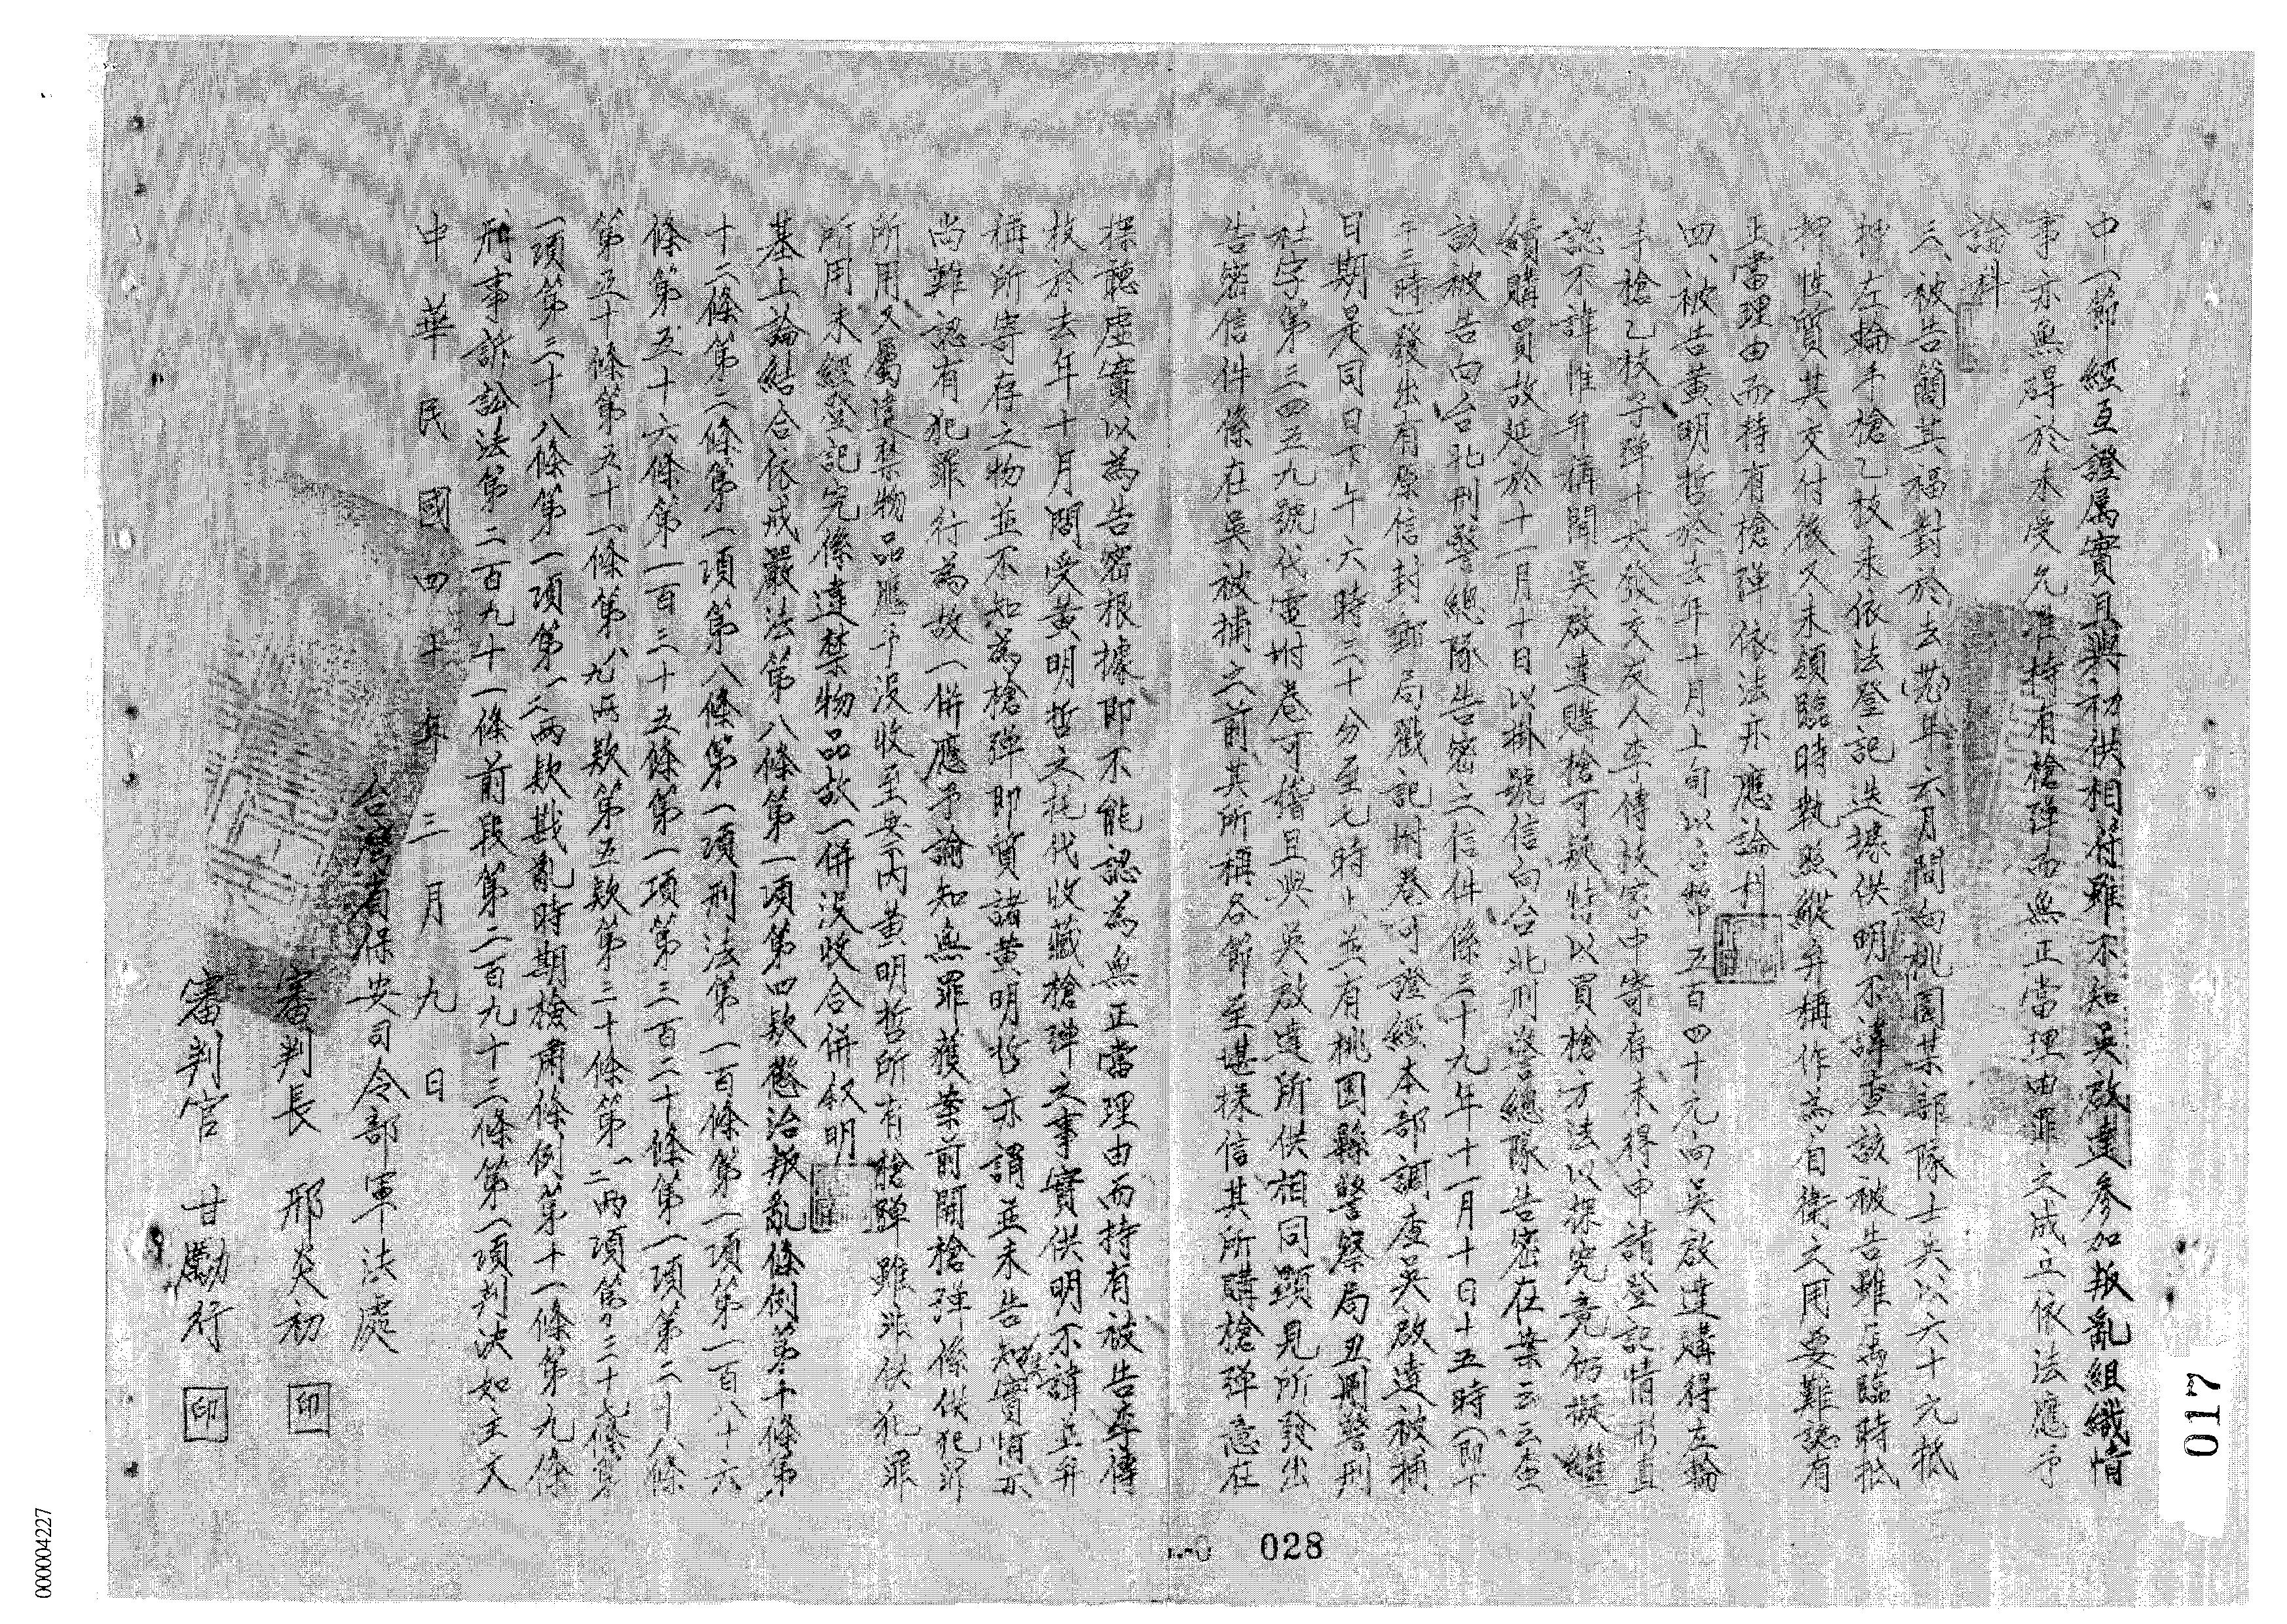 中一節經互證屬實且與初供相符雖不知吳啟達參加叛亂組織情
事亦無碍於未受允准持有槍彈而無正當理由罪之成立依法應予
論科
三、被告簡其福對於去年六月間向桃園某部隊士兵以六十元抵
押左輪手槍乙枝未依法登記迭據供明不諱查該被告雖為臨時抵
押性質其交付後又未領臨時執照縱弁稱作為自衛之用要難認有
正當理由而持有槍彈依法亦應論科
四、被告黃明哲於去年十月上旬以台幣五百四十元向吳啟達購得左輪
手槍乙枝子彈十六發交友人李傳枝家中寄存未得申請登記情形直
認不諱惟弁稱聞吳啟達購槍可疑特以買槍方法以探究竟仍擬繼
續購買故延於十一月十日以掛號信向台北刑警總隊告密在案云云查
該被告向台北刑警總隊告密之信件係三十九年十一月十日十五時(即下
午三時)發出有原信封郵局戳記附卷可證經本部調查吳啟達被捕
日期是同日下午六時三十分至七時止並有桃園縣警察局丑刪警刑
社字第三四五九號代電附卷可稽且與吳啟達所供相同顯見所發出
告密信件係在吳被捕之前其所稱各節至堪採信其所購槍彈意在
探聽虛實以為告密根據即不能認為無正當理由而持有被告李傳
枝於去年十月間受黃明哲之托代收藏槍彈之事實供明不諱並弁
稱所寄存之物並不知為槍彈即質諸黃明哲亦謂並未告知其實情亦
尚難認有犯罪行為故一併應予諭知無罪獲案前開槍彈係供犯罪
所用又屬違禁物品應予沒收至案內黃明哲所有槍彈雖非供犯罪
所用未經登記究係違禁物品故一併沒收合併叙明
基上論結合依戒嚴法第八條第一項第四款懲治叛亂條例第十條第
十二條第二條第一項第八條第一項刑法第一百條第一項第一百八十六
條第五十六條第一百三十五條第一項第三百二十條第一項第二十八條
第五十條第五十一條第八九兩款第五款第三十條第一二兩項第三十七條第
一項第三十八條第一項第一二兩款戡亂時期檢肅條例第十一條第九條
刑事訴訟法第二百九十一條前段第二百九十三條第一項判決如主文
中華民國四十年三月九日
台灣省保安司令部軍法處
審判長 邢炎初 印
審判官 甘勵行 印
017
028
000004227